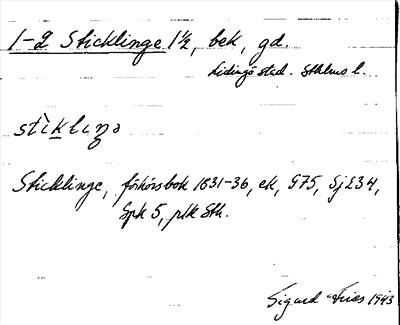 1-2 Sticklinge 1½, bek, gd.
Lidingö stad. Sthlms l.
stìklıŋə
Sticklinge, förhörsbok 1831-36, ek, 975, Sj 234,
Spk 5, ptk Sth.
Sigurd Fries 1943